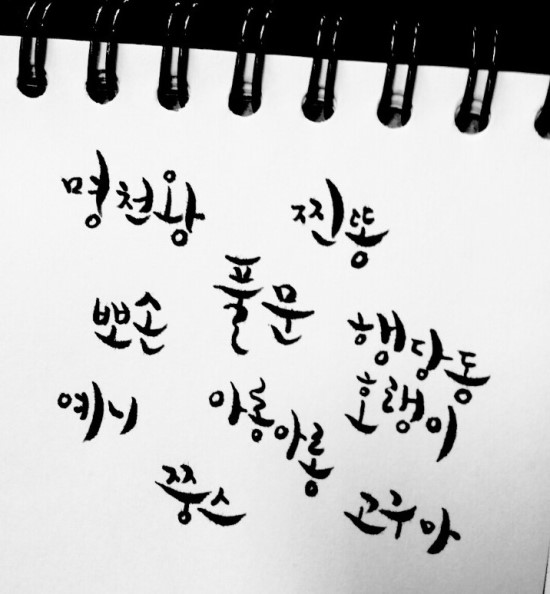 명천왕
찐똥
뽀손
풀문
행당동
호랭이
예니
아롱아롱
쭝스
고구마